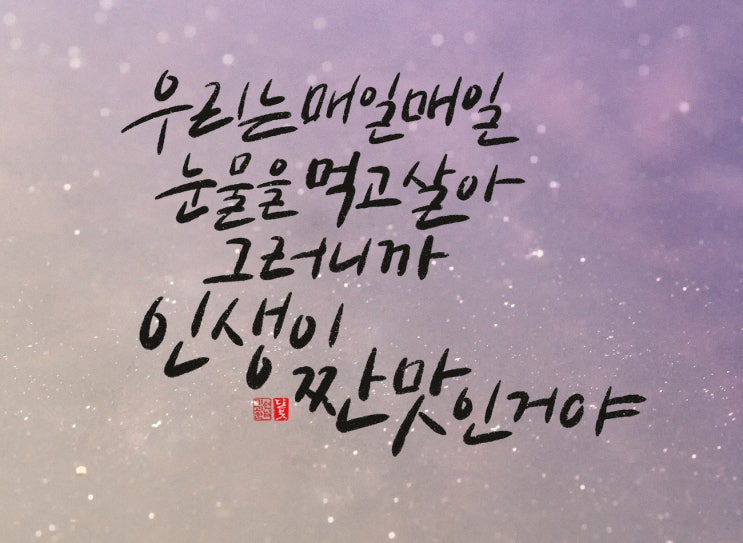 우리는 매일매일
눈물을 먹고 살아
그러니까
인생이
짠맛인거야